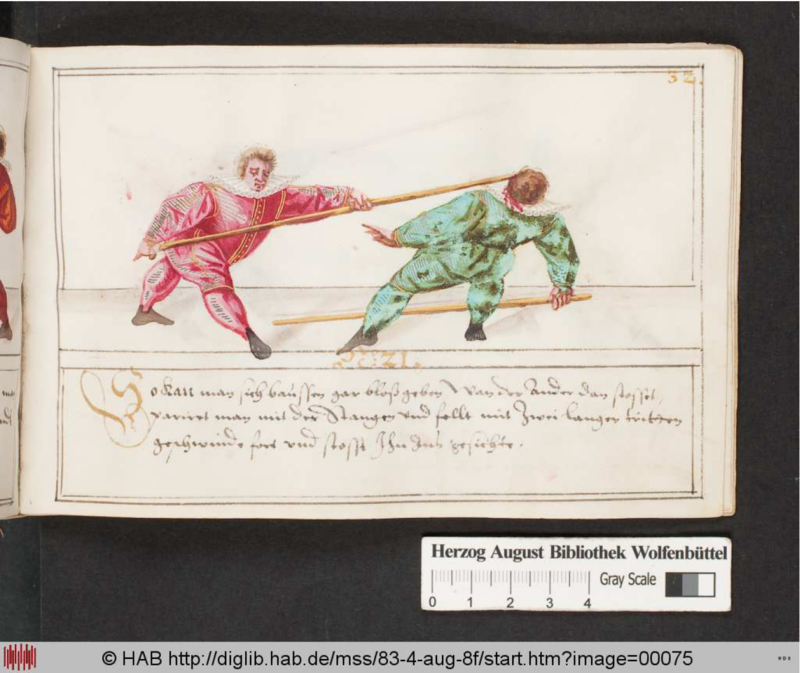 32.
N. 21.
So kan man sich baussen gar bloß geben, wan der ander dan stosset,
pariret man mit der Stangen vnd fellt mit Zwei langer tritten
geschwinde fort vnd stosst Ihn ins gesichte.
Herzog August Bibliothek Wolfenbüttel
Gray Scale
0 1 2 3 4
© HAB http://diglib.hab.de/mss/83-4-aug-8f/start.htm?image=00075